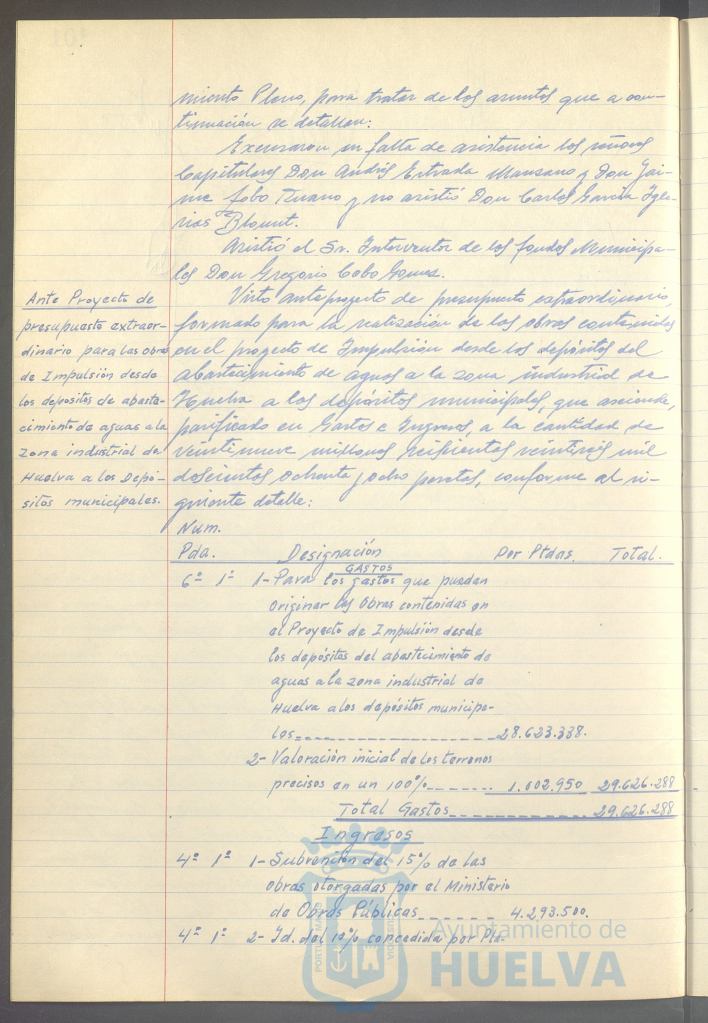 miento Pleno, para tratar de los asuntos que a con-
tinuación se detallan:
Excusaron su falta de asistencia los señores
Capitulares Don Andrés Estrada Manzano y Don Jai-
me Lobo Ruano y no asistió Don Carlos García Igle-
sias Blount.
Asistió el Sr. Interventor de los fondos Municipa-
les Don Gregorio Cobo Gomez.
Ante Proyecto de
presupuesto extraor-
dinario para las obras
de Impulsión desde
los depósitos de abaste-
cimiento de aguas a la
zona industrial de
Huelva a los Depó-
sitos municipales.
Visto anteproyecto de presupuesto extraordinario,
formado para la realización de las obras contenidas
en el proyecto de Impulsión desde los depósitos del
abastecimiento de aguas a la zona industrial de
Huelva a los depósitos municipales, que asciende,
parificado en Gastos e Ingresos, a la cantidad de
veintinueve millones seiscientas veintiseis mil
doscientas ochenta y ocho pesetas, conforme al si-
guiente detalle:
Num.
Pda. Designación Por Ptdas. Total.
GASTOS
6º 1º 1- Para los gastos que puedan
Originar las Obras contenidas en
el Proyecto de Impulsión desde
los depósitos del abastecimiento de
aguas a la zona industrial de
Huelva a los depósitos municipa-
les 28.623.338.
2- Valoración inicial de los terrenos
precisos en un 100% 1.002.950 29.626.288
Total Gastos 29.626.288
Ingresos
4º 1º 1- Subvención del 15% de las
obras otorgadas por el Ministerio
de Obras Públicas 4.293.500.
4º 1º 2- Id. del 10% concedida por Pla-
Ayuntamiento de
HUELVA